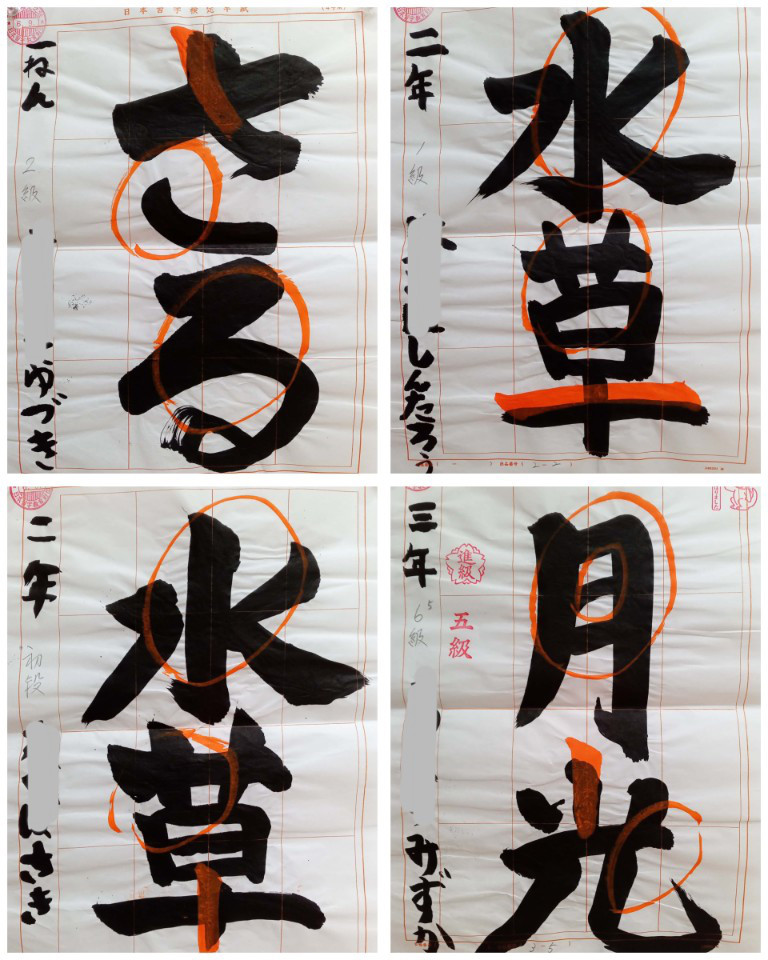 日本習字検定半紙
一ねん
2級
ゆづき
さる
二年
1級
しんたろう
水草
2-2
二年
初段
さき
水草
三年
6級
5
進級
五級
みずか
月光
3-5